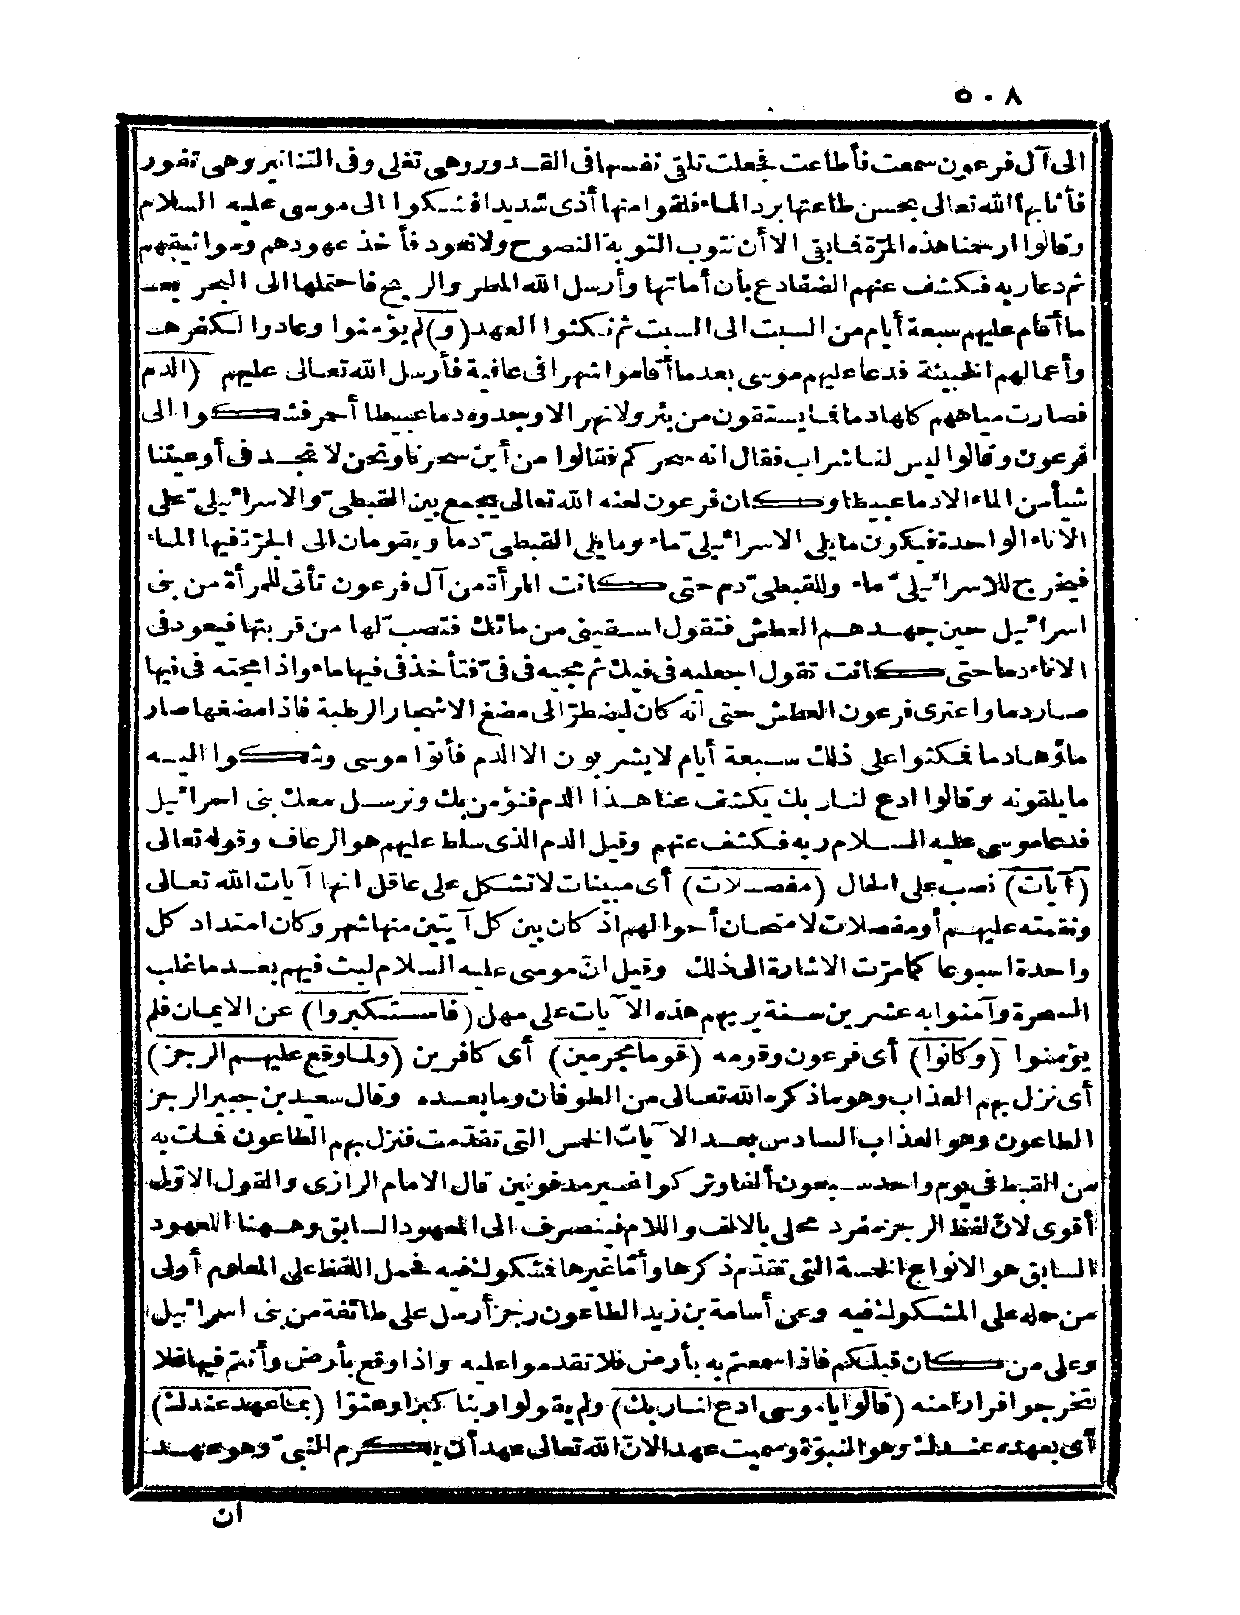 ٥٠٨
الى آل فرعون سمعت فأطاعت فجعلت تلقى نفسها فى القدور وهى تغلى وفى التنانير وهى تفور
فأثابها الله تعالى بحسن طاعتها برد الماء فلقوا منها أذى شديدا فشكوا الى موسى عليه السلام
وقالوا ارحمنا هذه المرّة فما بقى الا أن نتوب التوبة النصوح ولا نعود فأخذ عهودهم ومواثيقهم
ثم دعا ربه فكشف عنهم الضفادع بأن أماتها وأرسل الله المطر والريح فاحتملها الى البحر بعد
ما أقام عليهم سبعة أيام من السبت الى السبت ثم نكثوا العهد (و) لم يؤمنوا وعادوا لكفرهم
وأعمالهم الخبيثة فدعا عليهم موسى بعد ما أقاموا شهرا فى عافية فأرسل الله تعالى عليهم (الدم
فصارت مياههم كلها دما فما يستقون من بئر ولا نهر الا وجدوه دما عبيطا أحمر فشكوا الى
فرعون وقالوا ليس لنا شراب فقال انه سحركم فقالوا من أين سحرنا ونحن لا نجد فى أوعيتنا
شيأ من الماء الا دما عبيطا وكان فرعون لعنه الله تعالى يجمع بين القبطىّ والاسرائيلىّ على
الاناء الواحدة فيكون ما يلى الاسرائيلىّ ماء وما يلى القبطىّ دما ويقومان الى الجرّة فيها الماء
فيخرج للاسرائيلىّ ماء وللقبطىّ دم حتى كانت المرأة من آل فرعون تأتى للمرأة من بنى
اسرائيل حين جهدهم العطش فتقول اسقينى من مائك فتصبّ لها من قربتها فيعود فى
الاناء دما حتى كانت تقول اجعليه فى فيك ثم مجيه فى فىّ فتأخذ فى فيها ماء واذا مجته فى فيها
صار دما واعترى فرعون العطش حتى انه كان ليضطرّ الى مضغ الاشجار الرطبة فاذا مضغها صار
ماؤها دما فمكثوا على ذلك سبعة أيام لا يشربون الا الدم فأتوا موسى وشكوا اليه
ما يلقونه وقالوا ادع لنا ربك يكشف عنا هذا الدم فنؤمن بك ونرسل معك بنى اسرائيل
فدعا موسى عليه السلام ربه فكشف عنهم وقيل الدم الذى سلط عليهم هو الرعاف وقوله تعالى
(آيات) نصب على الحال (مفصلات) أى مبينات لا تشكل على عاقل انها آيات الله تعالى
ونقمته عليهم أو مفصلات لامتحان أحوالهم اذ كان بين كل آيتين منها شهر وكان امتداد كل
واحدة اسبوعا كما مرّت الاشارة الى ذلك وقيل انّ موسى عليه السلام لبث فيهم بعد ما غلب
السحرة وآمنوا به عشرين سنة يريهم هذه الآيات على مهل (فاستكبروا) عن الايمان فلم
يؤمنوا (وكانوا) أى فرعون وقومه (قوما مجرمين) أى كافرين (ولما وقع عليهم الرجز)
أى نزل بهم العذاب وهو ما ذكره الله تعالى من الطوفان وما بعده وقال سعيد بن جبير الرجز
الطاعون وهو العذاب السادس بعد الآيات الخمس التى تقدّمت فنزل بهم الطاعون فمات به
من القبط فى يوم واحد سبعون ألفا وتركوا غير مدفونين قال الامام الرازى والقول الاوّل
أقوى لانّ لفظ الرجز مفرد محلى بالالف واللام فينصرف الى المعهود السابق وههنا المعهود
السابق هو الانواع الخمسة التى تقدّم ذكرها وأمّا غيرها فمشكوك فيه فحمل اللفظ على المعلوم أولى
من حمله على المشكوك فيه وعن أسامة بن زيد الطاعون رجز أرسل على طائفة من بنى اسرائيل
وعلى من كان قبلكم فاذا سمعتم به بأرض فلا تقدموا عليه واذا وقع بأرض وأنتم فيها فلا
تخرجوا فرارا منه (قالوا يا موسى ادع لنا ربك) ولم يقولوا ربنا كبرا وعتوّا (بما عهد عندك)
أى بعهده عندك وهو النبوّة وسميت عهد الانّ الله تعالى عهد أن يكرم النبىّ وهو عهد
ان